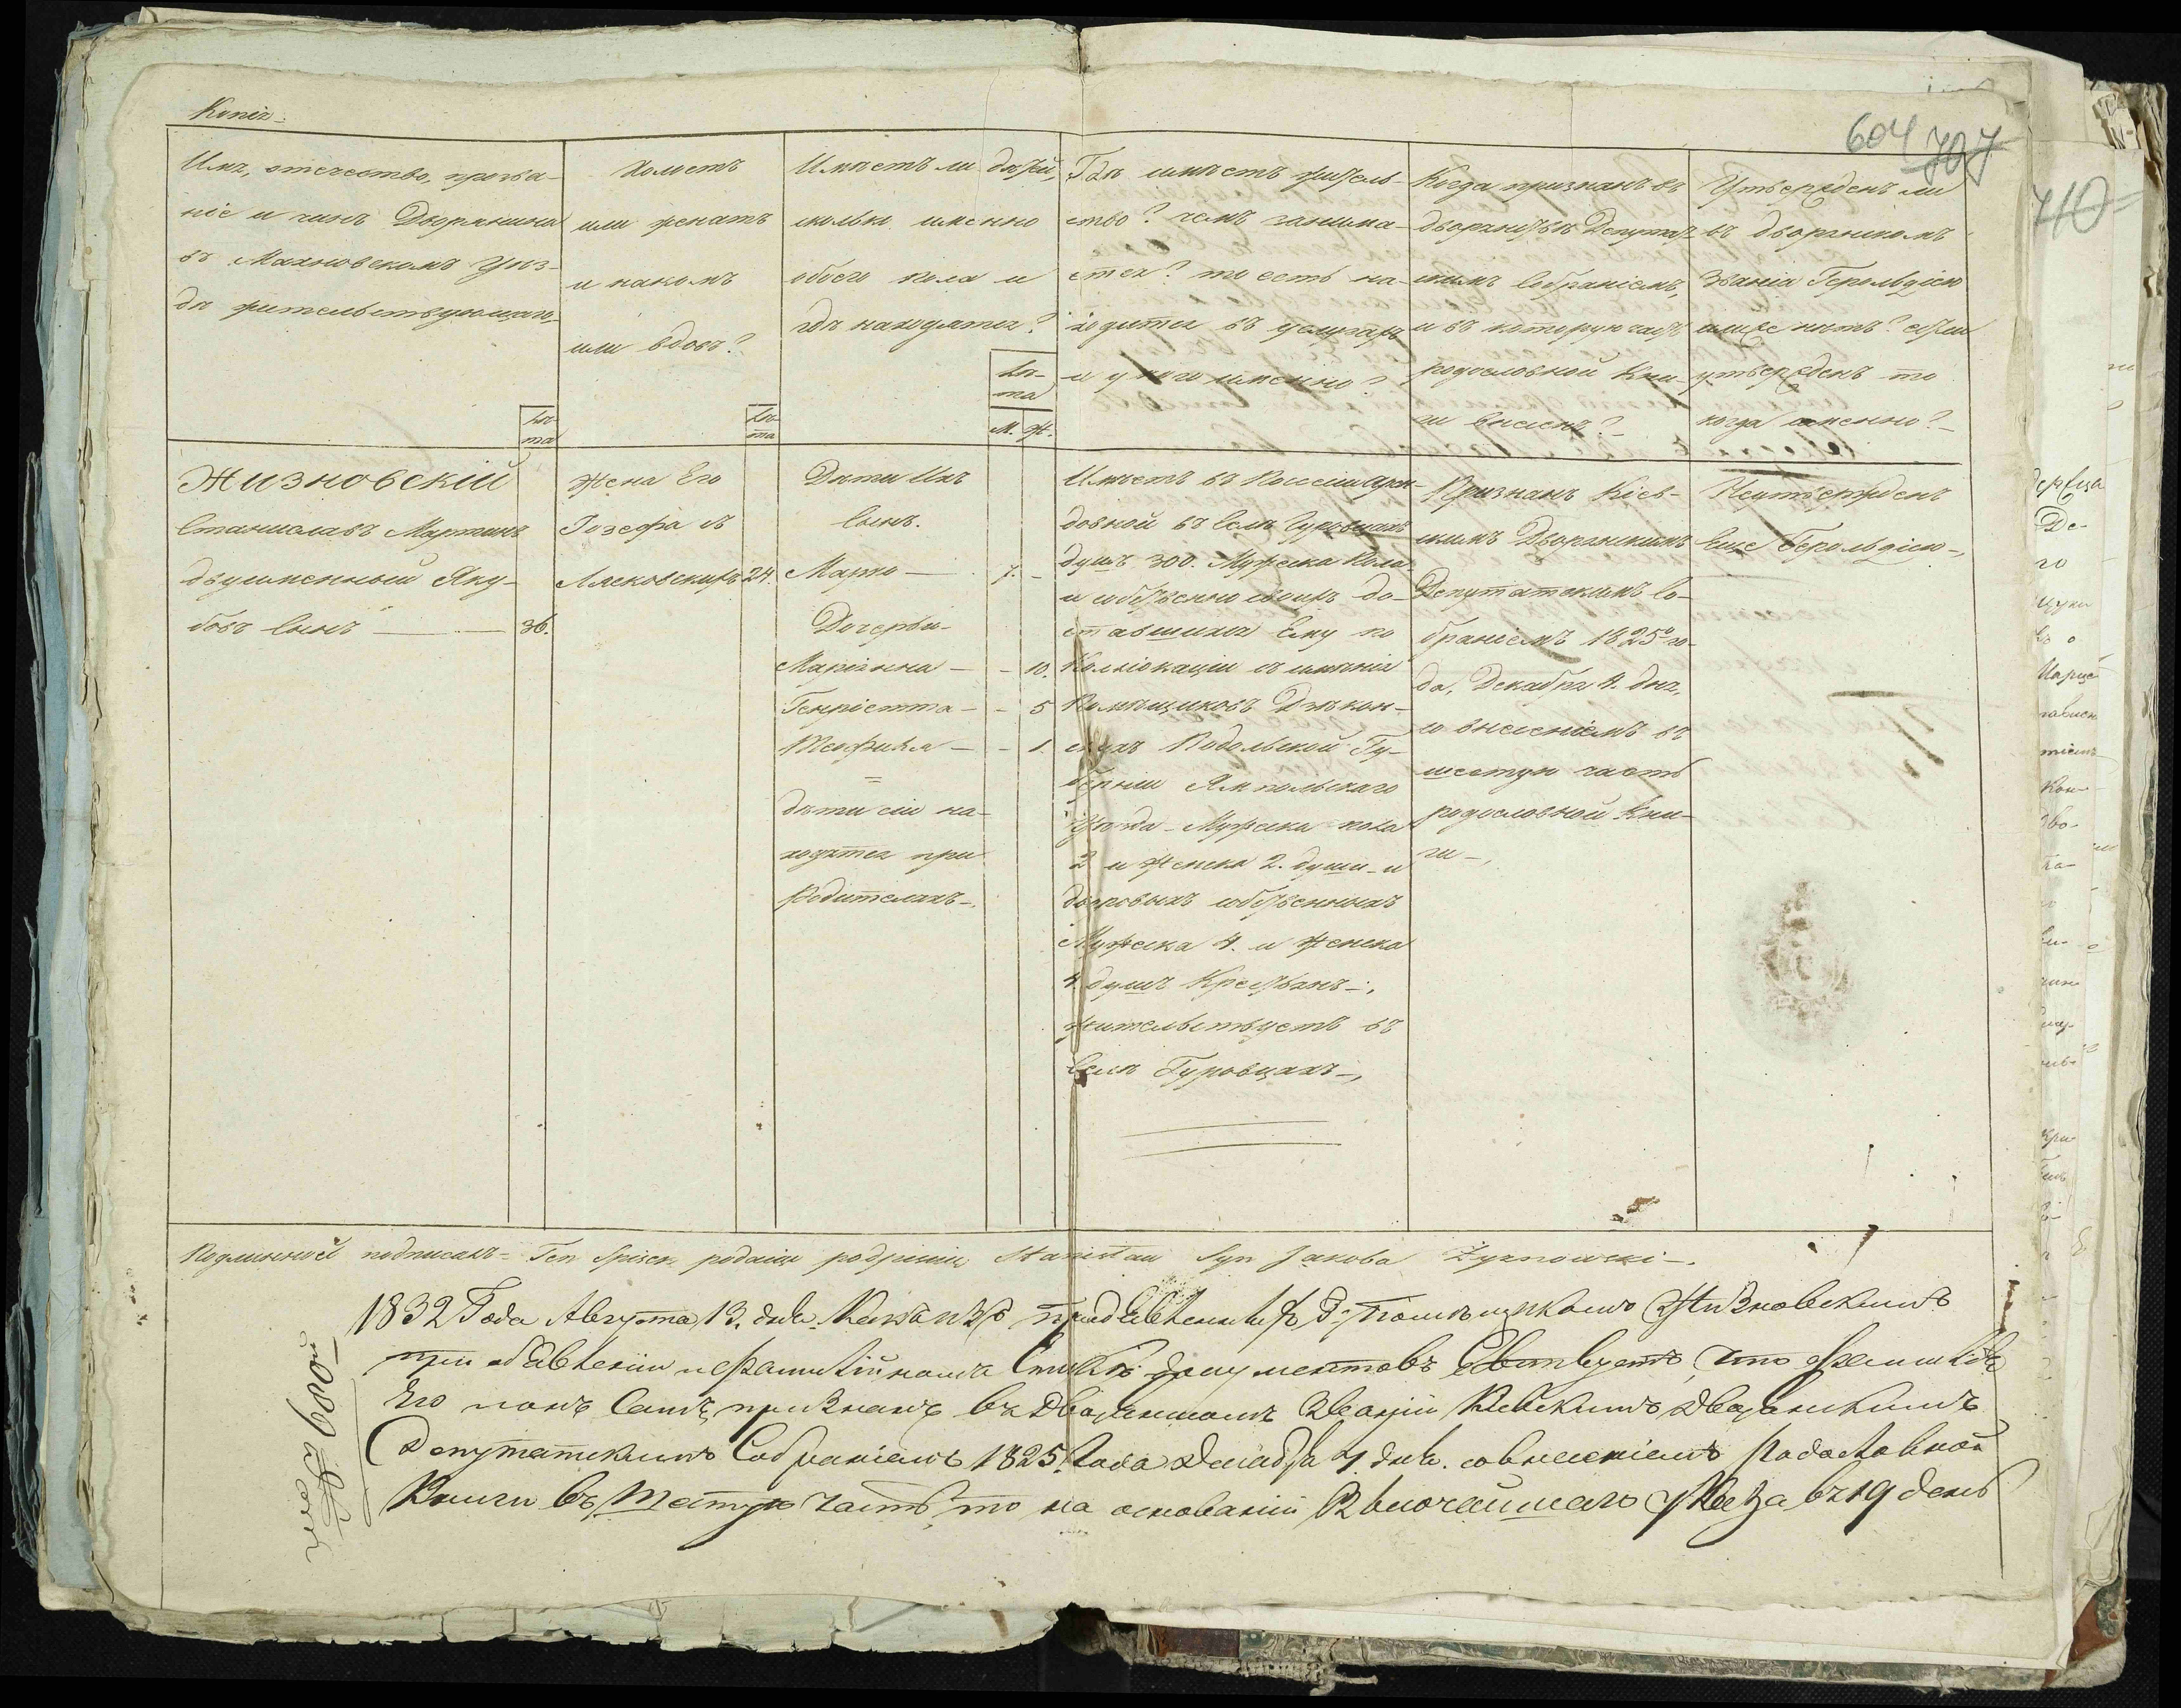 Копія.
604 707
Имя, отечество, прозва-
ніе и чинъ Дворянина
въ Махновскомъ Уѣз-
дѣ жительствующаго
лѣ-
та
Холостъ
или женатъ
и на комъ
или вдовъ?
лѣ-
та
Имѣетъ ли дѣтей,
сколько именно
обоего пола и
гдѣ находятся?
лѣ-
та
М. Ж.
Гдѣ имѣетъ житель-
ство? чемъ занима-
ется? то есть на-
ходится въ услугахъ
и у кого именно?
Когда признанъ въ
дворянствѣ Депутат-
скимъ Собраніемъ,
и въ которую часть
родословной Кни-
ги внесенъ?
Утвержденъ ли
въ дворянскомъ
званіи Герольдіею
или нѣтъ? если
утвержденъ то
когда именно?
Жизновскій
Станиславъ Мартинъ
двуименный Яку-
бовъ Сынъ — 36.
Жена Его
Іозефа съ
Лясковскихъ 24.
Дѣти Ихъ
Сынъ.
Марко — 7. -
Дочерьи
Маріянна — - 10.
Генріетта — - 5
Теофиля — - 1.
дѣти сіи на-
ходятся при
Родителяхъ.
Имѣетъ въ Поссесіи Арен-
довной въ Селѣ Гуровцахъ
душъ 300. Мужска Пола
и собственно своихъ до-
ставшихся Ему по
Колліокаціи съ имѣнія
Помѣщиковъ
Подольской Гу-
берніи Ямпольскаго
Уѣзда Мужска пола
2 и Женска 2. души и
дворовыхъ собственныхъ
Мужска 4. и Женска
4 душъ Крестьянъ.
жительствуетъ въ
Селѣ Гуровцахъ
Признанъ Кіев-
скимъ Дворянскимъ
Депутатскимъ Со-
браніемъ 1825го го-
да, Декабря 4. дня,
со внесеніемъ въ
шестую часть
родословной Кни-
ги
Неутвержденъ
Еще Герольдіею
Подлинной подписалъ = Ten Spisek podaiąc podpisuię Stanisław Syn Jakoba Żyznowski
1832 Года Августа 13. дня. Какъ изъ предявленныхъ Помѣщикомъ Жизновскимъ
при объявленіи документовъ что фамилія
Его какъ Самъ признанъ въ Дворянскомъ Званіи Кіевскимъ Дворянскимъ
Депутатскимъ Собраніемъ 1825. Года Декабря 4. дня. со внесеніемъ Родословной
Книги въ Шестую часть, то на основаніи Высочайшаго Указа въ 19 день